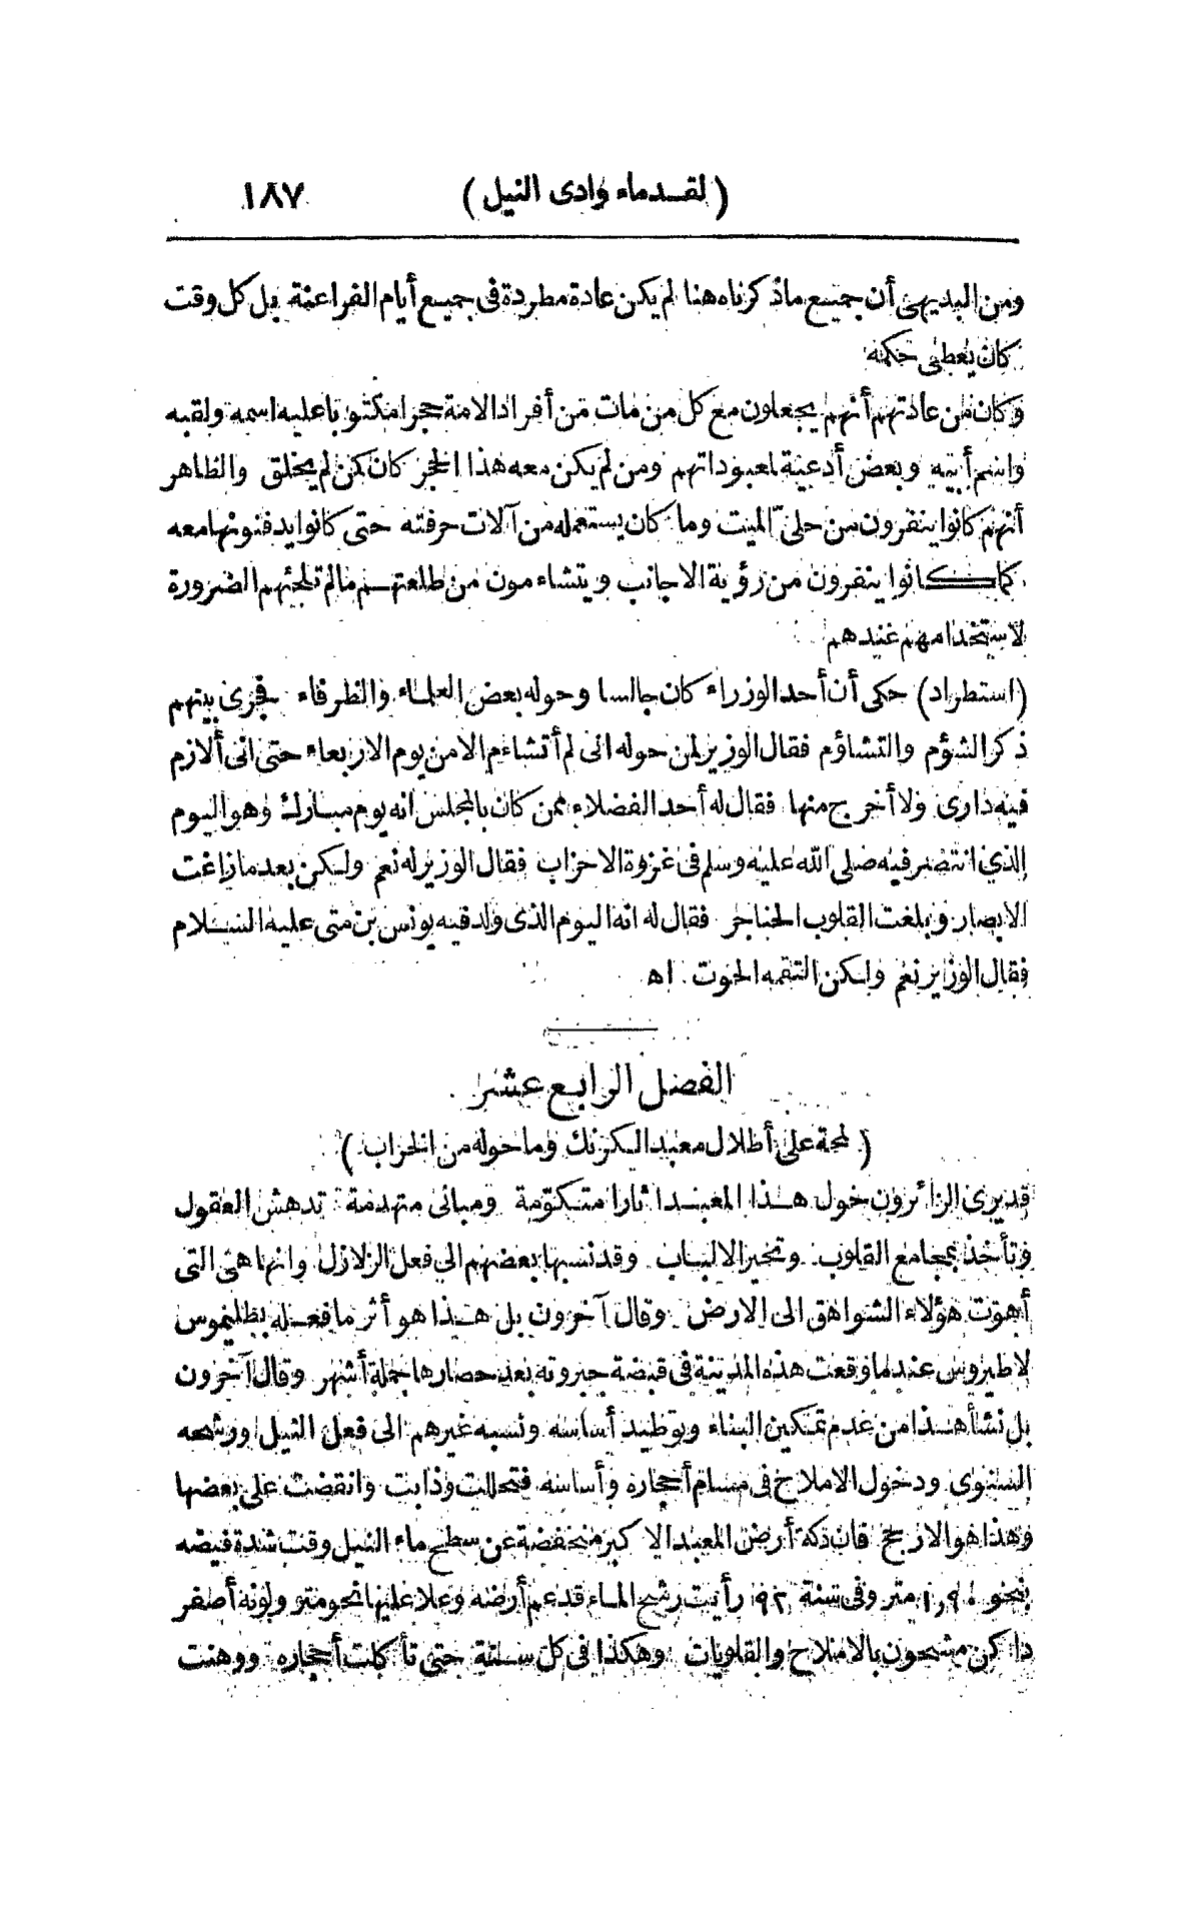 (لقدماء وادى النيل) ١٨٧
ومن البديهى أن جميع ماذكرناه هنا لم يكن عادة مطردة فى جميع أيام الفراعنة بل كل وقت
كان يعطى حكمه
وكان من عادتهم أنهم يجعلون مع كل من مات من أفراد الامة حجرا مكتوبا عليه اسمه ولقبه
واسم أبيه وبعض أدعية لمعبوداتهم ومن لم يكن معه هذا الحجر كان كمن لم يخلق والظاهر
أنهم كانوا ينفرون من حلىّ الميت وما كان يستعمله من آلات حرفته حتى كانوا يدفنونها معه
كما كانوا ينفرون من رؤية الاجانب ويتشاءمون من طلعتهم مالم تلجئهم الضرورة
لاستخدامهم عندهم
(استطراد) حكى أن أحد الوزراء كان جالسا وحوله بعض العلماء والظرفاء فجرى بينهم
ذكر الشؤم والتشاؤم فقال الوزير لمن حوله انى لم أتشاءم الا من يوم الاربعاء حتى انى ألازم
فيه دارى ولا أخرج منها فقال له أحد الفضلاء ممن كان بالمجلس انه يوم مبارك وهو اليوم
الذى انتصر فيه صلى الله عليه وسلم فى غزوة الاحزاب فقال الوزير له نعم ولكن بعد ما زاغت
الابصار وبلغت القلوب الحناجر فقال له انه اليوم الذى ولد فيه يونس بن متى عليه السلام
فقال الوزير نعم ولكن التقمه الحوت اه
الفصل الرابع عشر
(لمحة على أطلال معبد الكرنك وما حوله من الخراب)
قد يرى الزائرون حول هذا المعبد اثارا متكوّمة ومبانى متهدمة تدهش العقول
وتأخذ بمجامع القلوب وتحير الالباب وقد نسبها بعضهم الى فعل الزلازل وانها هى التى
أهوت هؤلاء الشواهق الى الارض وقال آخرون بل هذا هو أثر ما فعله بطليموس
لاطيروس عندما وقعت هذه المدينة فى قبضة جبروته بعد حصارها جملة أشهر وقال آخرون
بل نشأ هذا من عدم تمكين البناء وتوطيد أساسه ونسبه غيرهم الى فعل النيل ورشحه
السنوى ودخول الاملاح فى مسام أحجاره وأساسه فتحللت وذابت وانقضت على بعضها
وهذا هو الارجح فان دكة أرض المعبد الاكبر منخفضة عن سطح ماء النيل وقت شدة فيضه
بنحو ١,٩٠ متر وفى سنة ٩٢ رأيت رشح الماء قد عم أرضه وعلا عليها نحو متر ولونه أصفر
داكن مشحون بالاملاح والقلويات وهكذا فى كل سنة حتى تأكلت أحجاره ووهنت